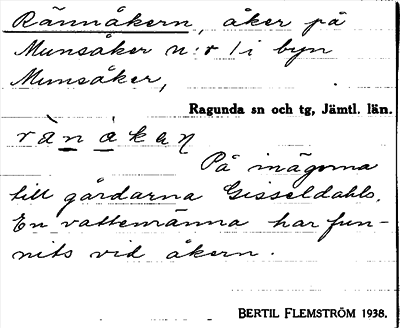 Rännåkern, åker på
Munsåker n:r 1 i byn
Munsåker,
Ragunda sn och tg, Jämtl. län.
På inägorna
till gårdarna Gisseldahls.
En vattenränna har fun-
nits vid åkern.
BERTIL FLEMSTRÖM 1938.